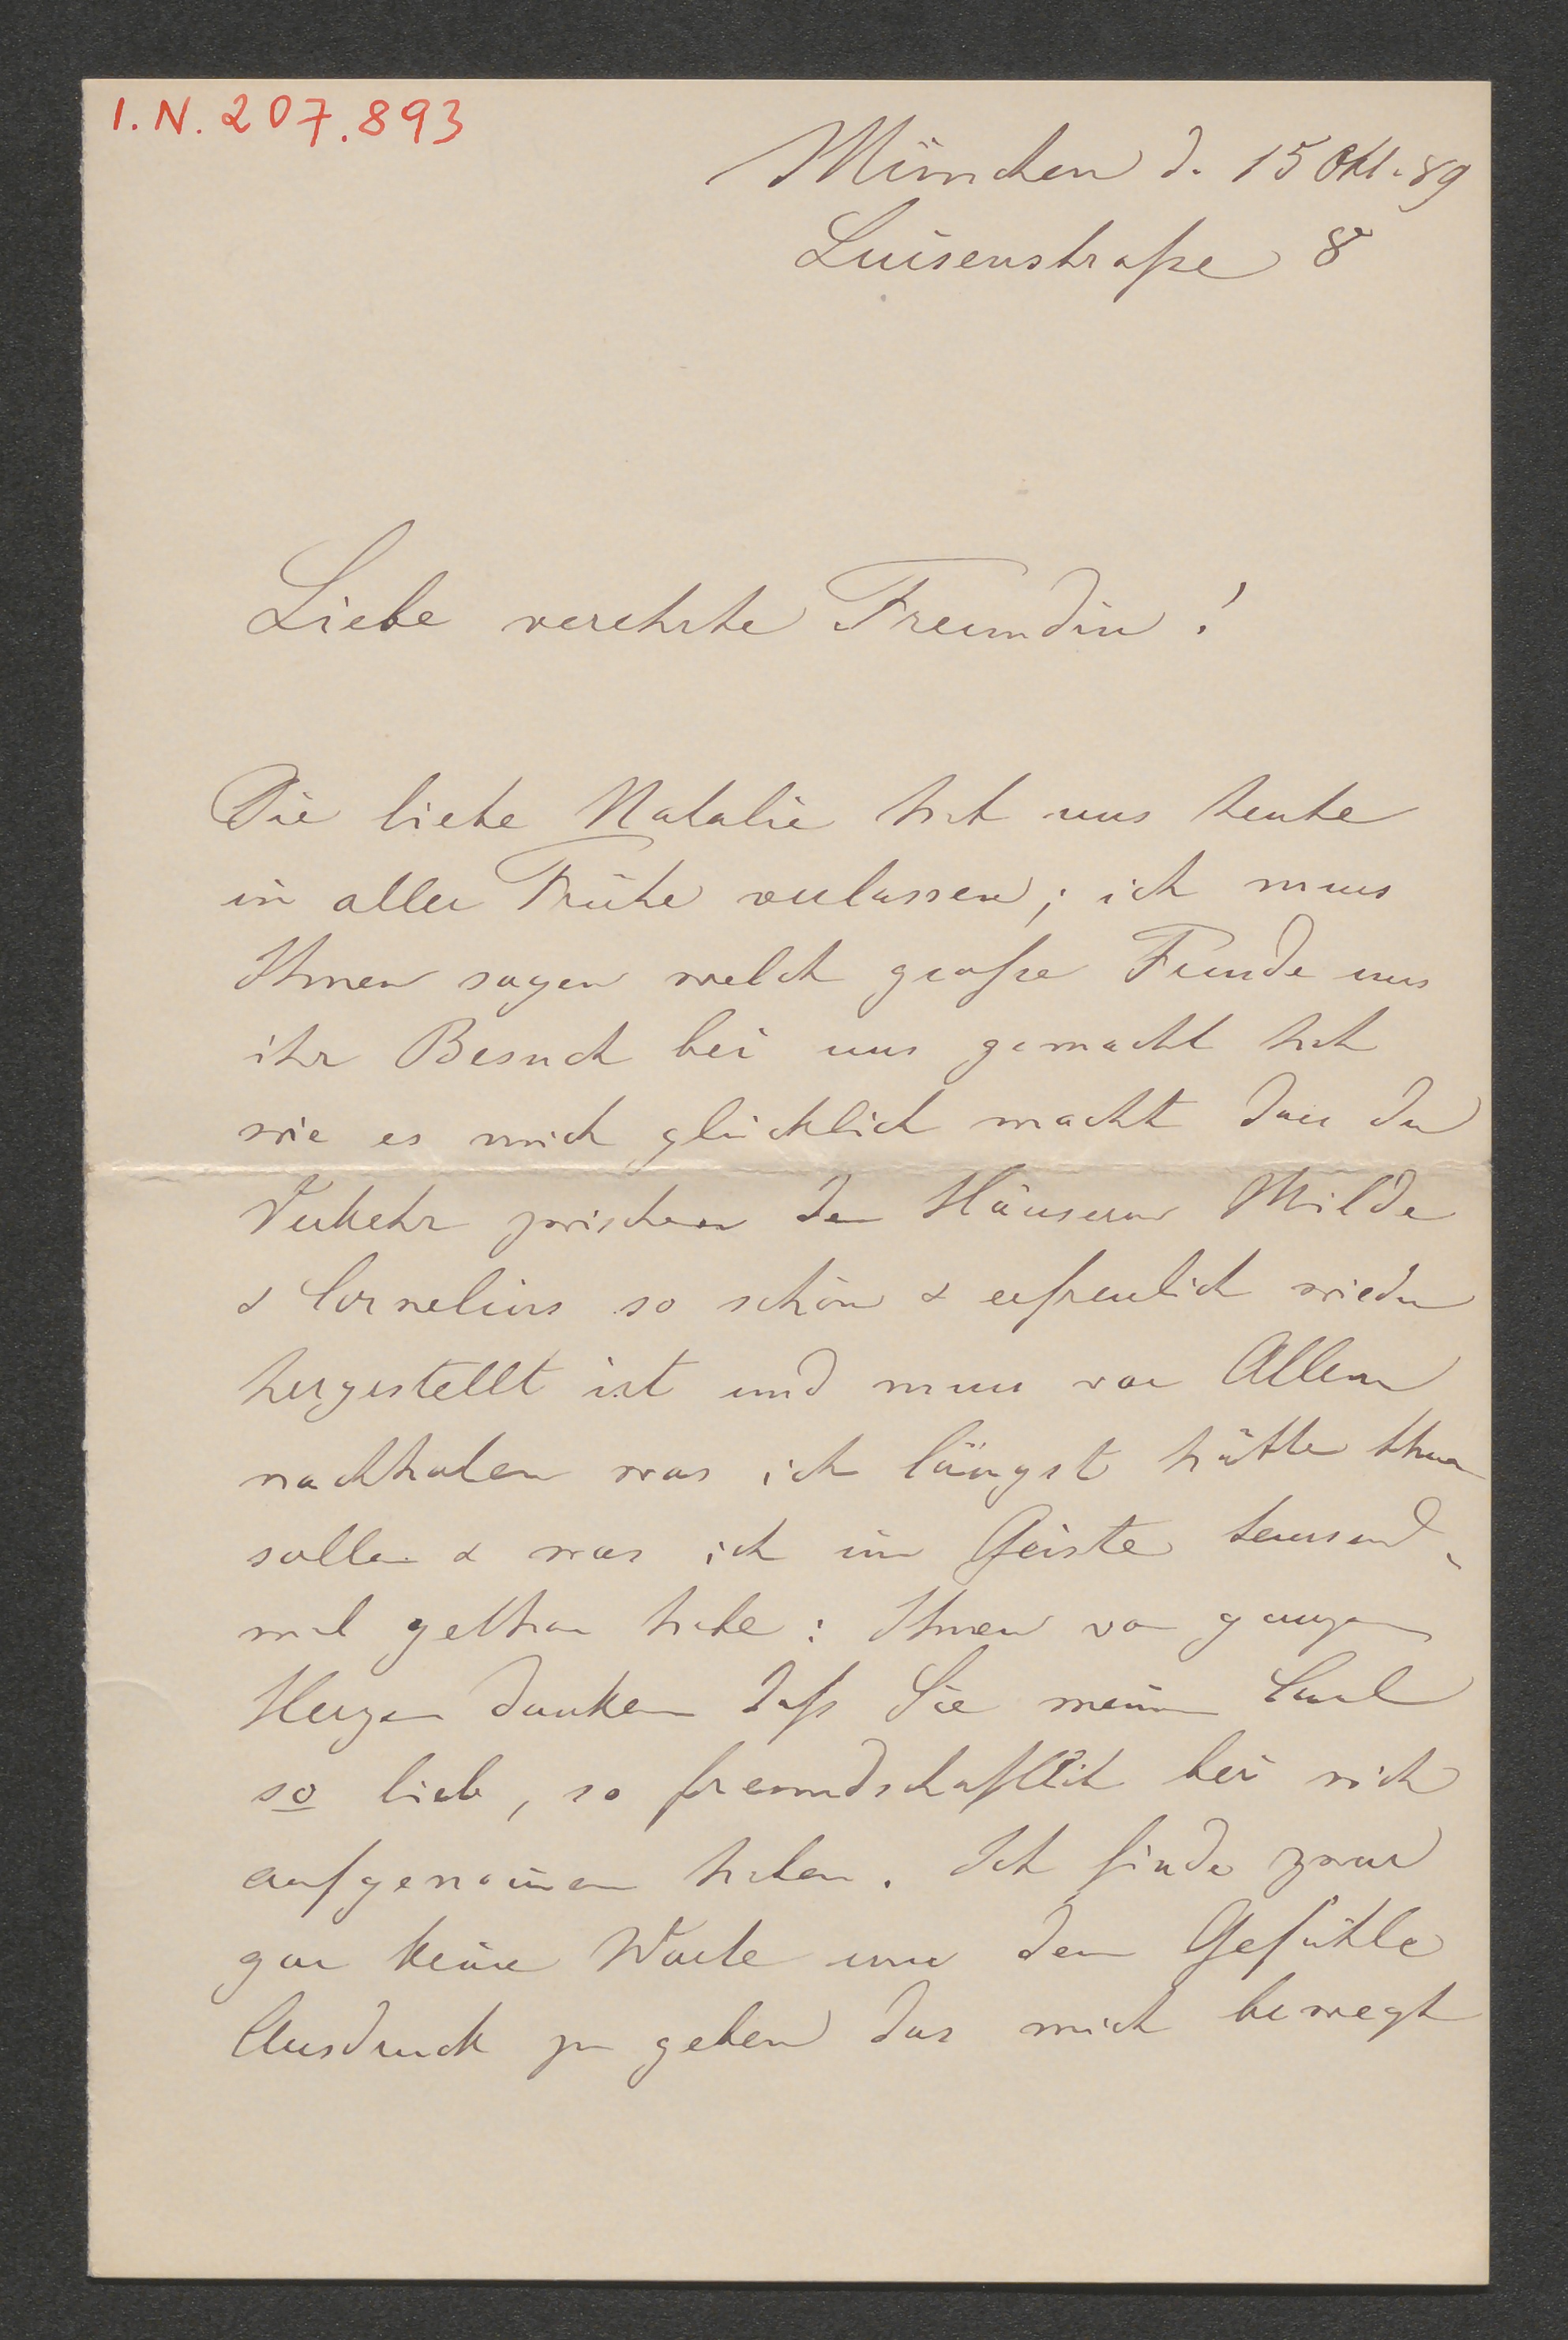 I.N. 207.893
München d. 15 Okt. 89
Luisenstraße 8
Liebe verehrte Freundin!
Die liebe Natalie hat uns heute
in aller Frühe verlassen; ich muss
Ihnen sagen welch große Freude uns
ihr Besuch bei uns gemacht hat
wie es mich glücklich macht dass der
Verkehr zwischen den Häusern Milde
& Cornelius so schön & erfreulich wieder
hergestellt ist und muss vor Allem
nachholen was ich längst hätte thun
sollen & was ich im Geiste tausend-
mal gethan habe: Ihnen von ganzem
Herzen danken daß Sie meinen Carl
so lieb, so freundschaftlich bei sich
aufgenom̄en haben. Ich finde zwar
gar keine Worte um dem Gefühle
Ausdruck zu geben das mich bewegt